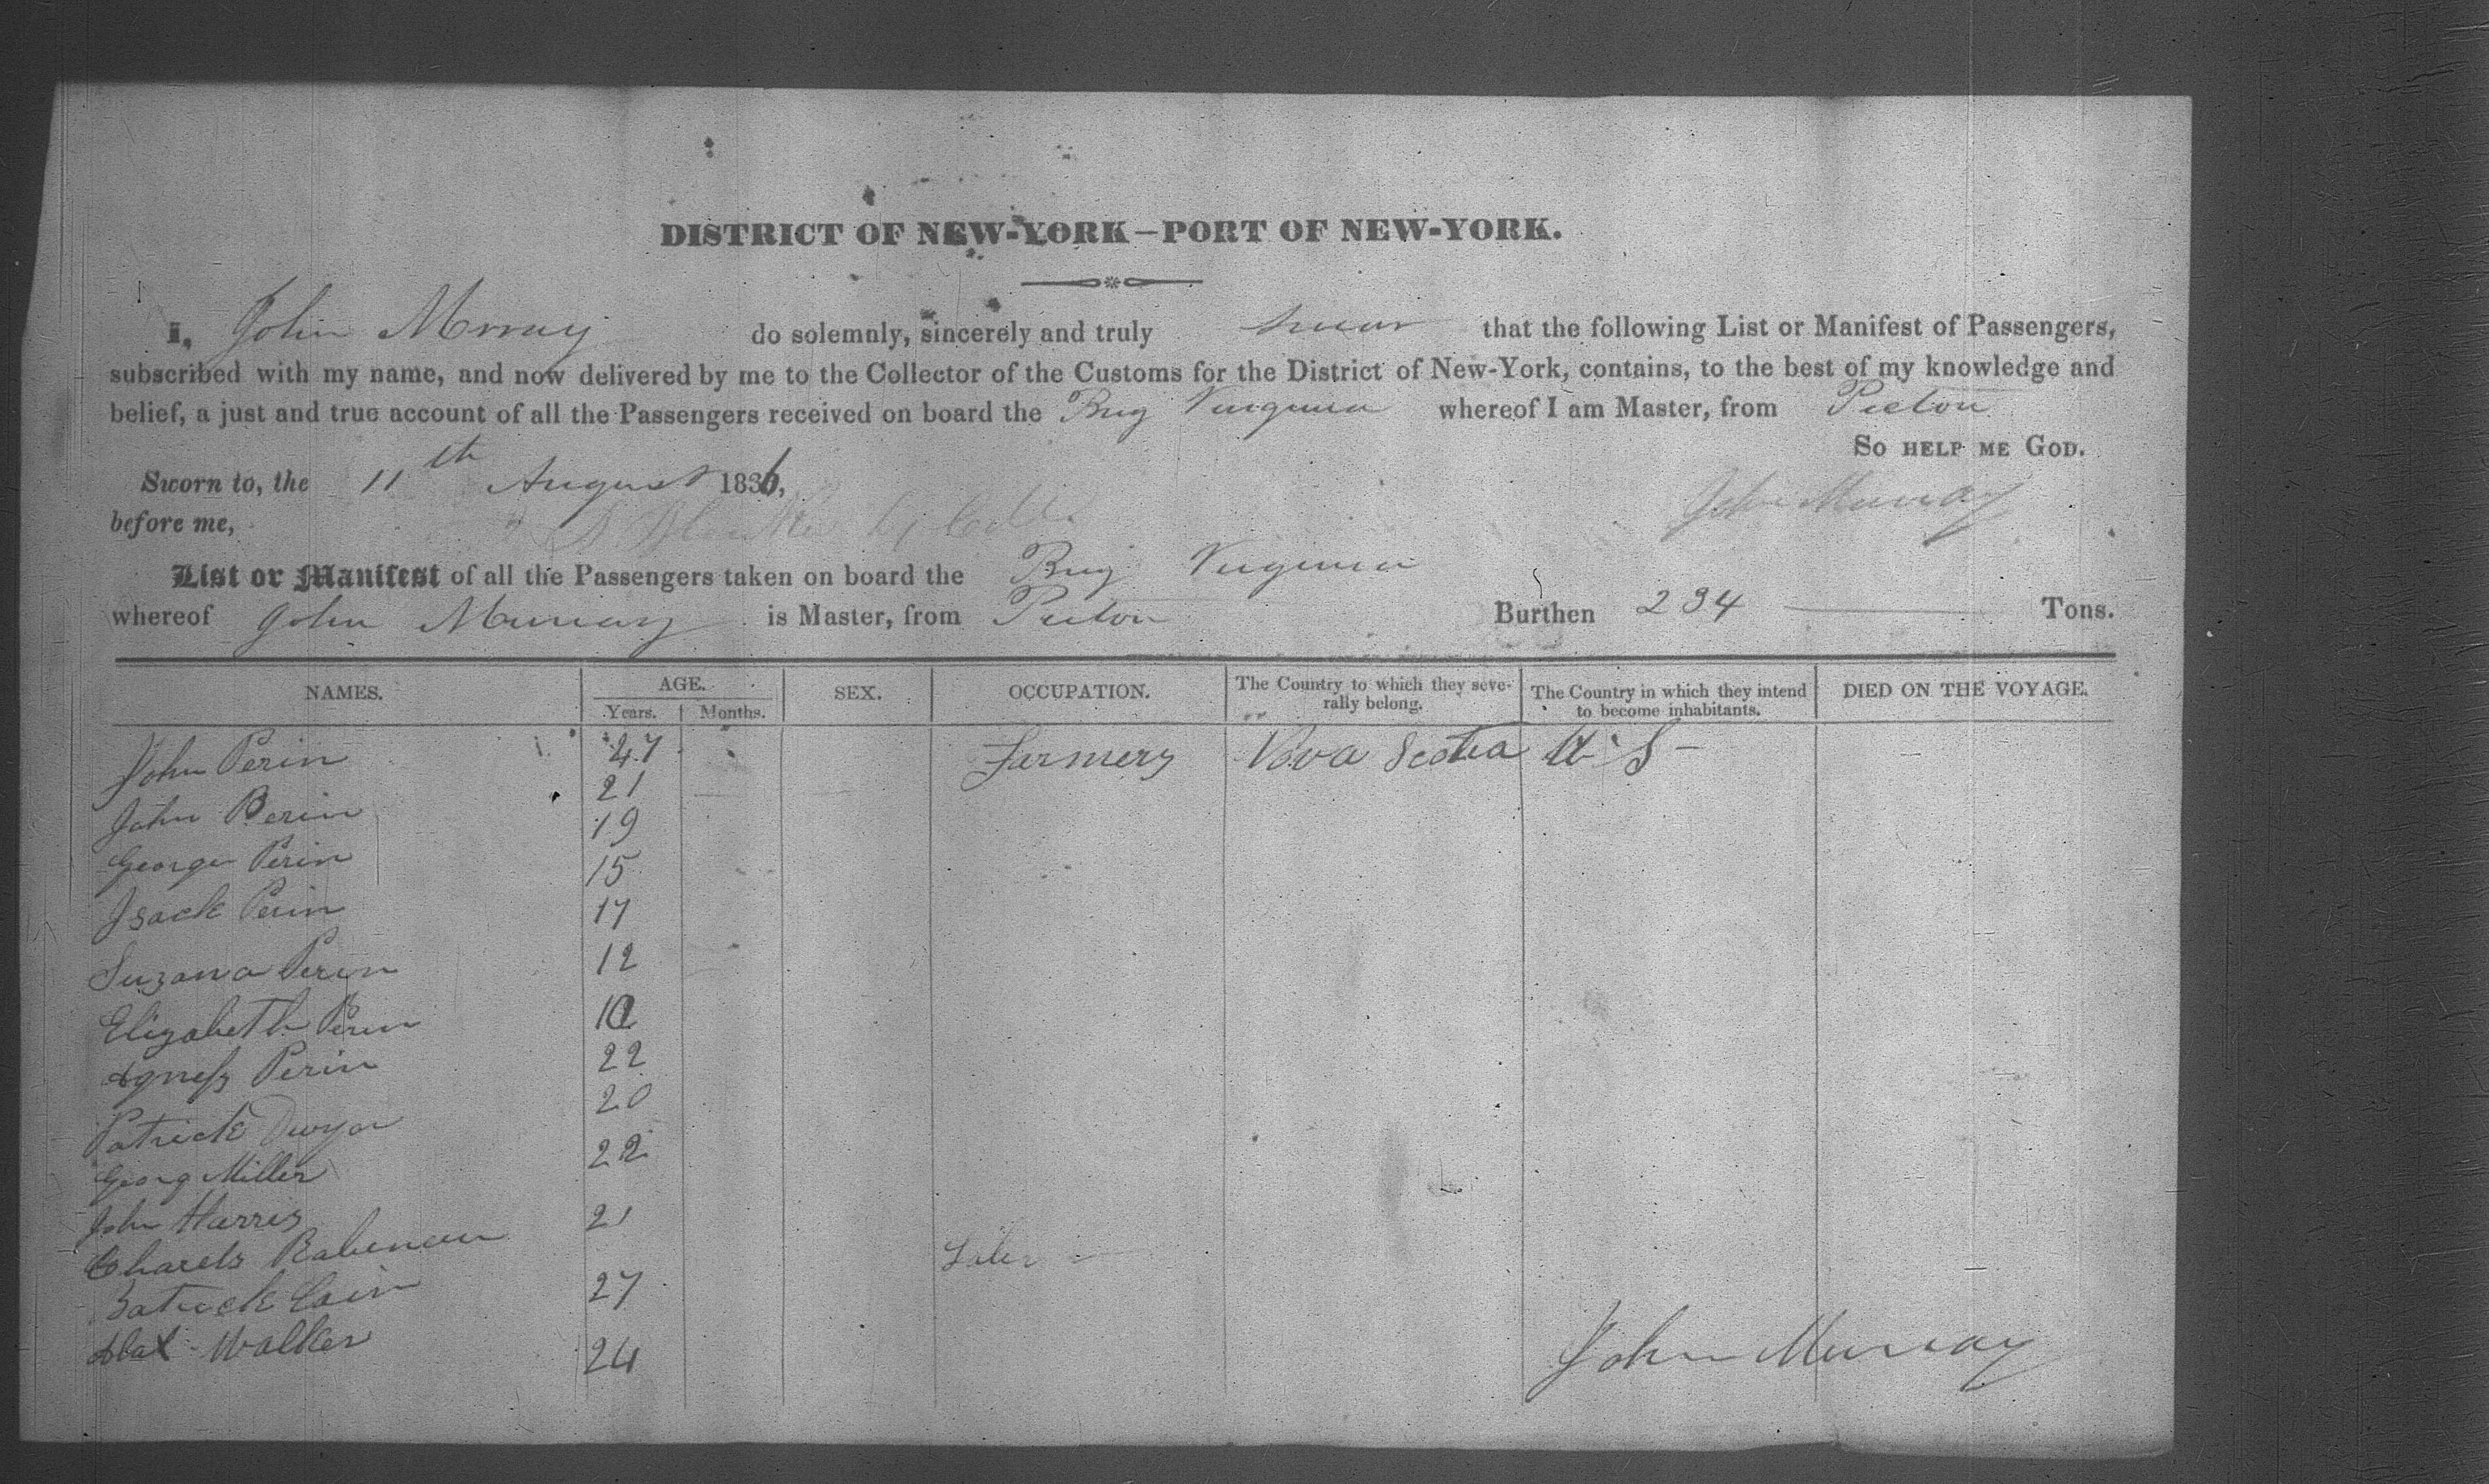 DISTRICT OF NEW-YORK—PORT OF NEW-YORK.
I, John Murray do solemnly, sincerely and truly swear that the following List or Manifest of Passengers,
subscribed with my name, and now delivered by me to the Collector of the Customs for the District of New-York, contains, to the best of my knowledge and
belief, a just and true account of all the Passengers received on board the Brig Virginia whereof I am Master, from Pictou
SO HELP ME GOD.
Sworn to, the 11th August 1836,
John Murray
before me,
List or Manifest of all the Passengers taken on board the Brig Virginia
whereof John Murray is Master, from Pictou Burthen 234 Tons.
NAMES. AGE. Years. Months. SEX. OCCUPATION. The Country to which they severally belong. The Country in which they intend to become inhabitants. DIED ON THE VOYAGE.
John Perin 47 Farmers Nova Scotia U S -
John Perin 21
George Perin 19
Isack Perin 15
Suzana Perin 17
Elizabeth Perin 12
Agness Perin
Patrick Dwyar 22
Georg Miller 20
John Harris 22
Charels 21
Patrick Cain 27
Alax Walker 24
John Murray